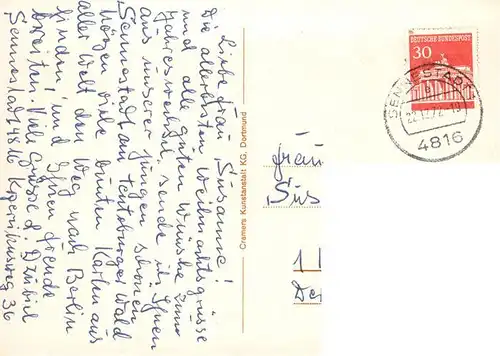 Liebe Frau Susanne!
Die allerbesten Weihnachtsgrüsse
und alle guten Wünsche zum
Jahreswechsel sende ich Ihnen
aus unserer jungen schönen
Sennestadt am Teutoburger Wald
Mögen viele bunten Karten aus
aller Welt den Weg nach Berlin
finden und Ihnen Freude
bereiten. Viele Grüsse
Sennestadt 4816
36
Cramers Kunstanstalt KG, Dortmund
DEUTSCHE BUNDESPOST
30
SENNESTADT
4816
Frau
Sus
1